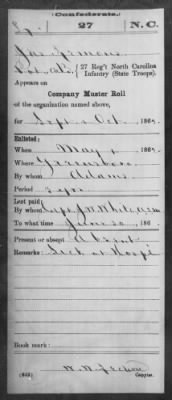 Confederate.
27 N.C.
27 Reg't North Carolina
Infantry (State Troops).
Appears on
Company Muster Roll
of the organization named above,
for Sept & Oct, 186
Enlisted:
When May 1, 186
Where Greensboro
By whom Adams
Period 3 yrs
Last paid:
By whom Capt J W White
To what time June 30, 186
Present or absent Absent
Remarks: Sick at Hospi
Book mark:
Copyist.